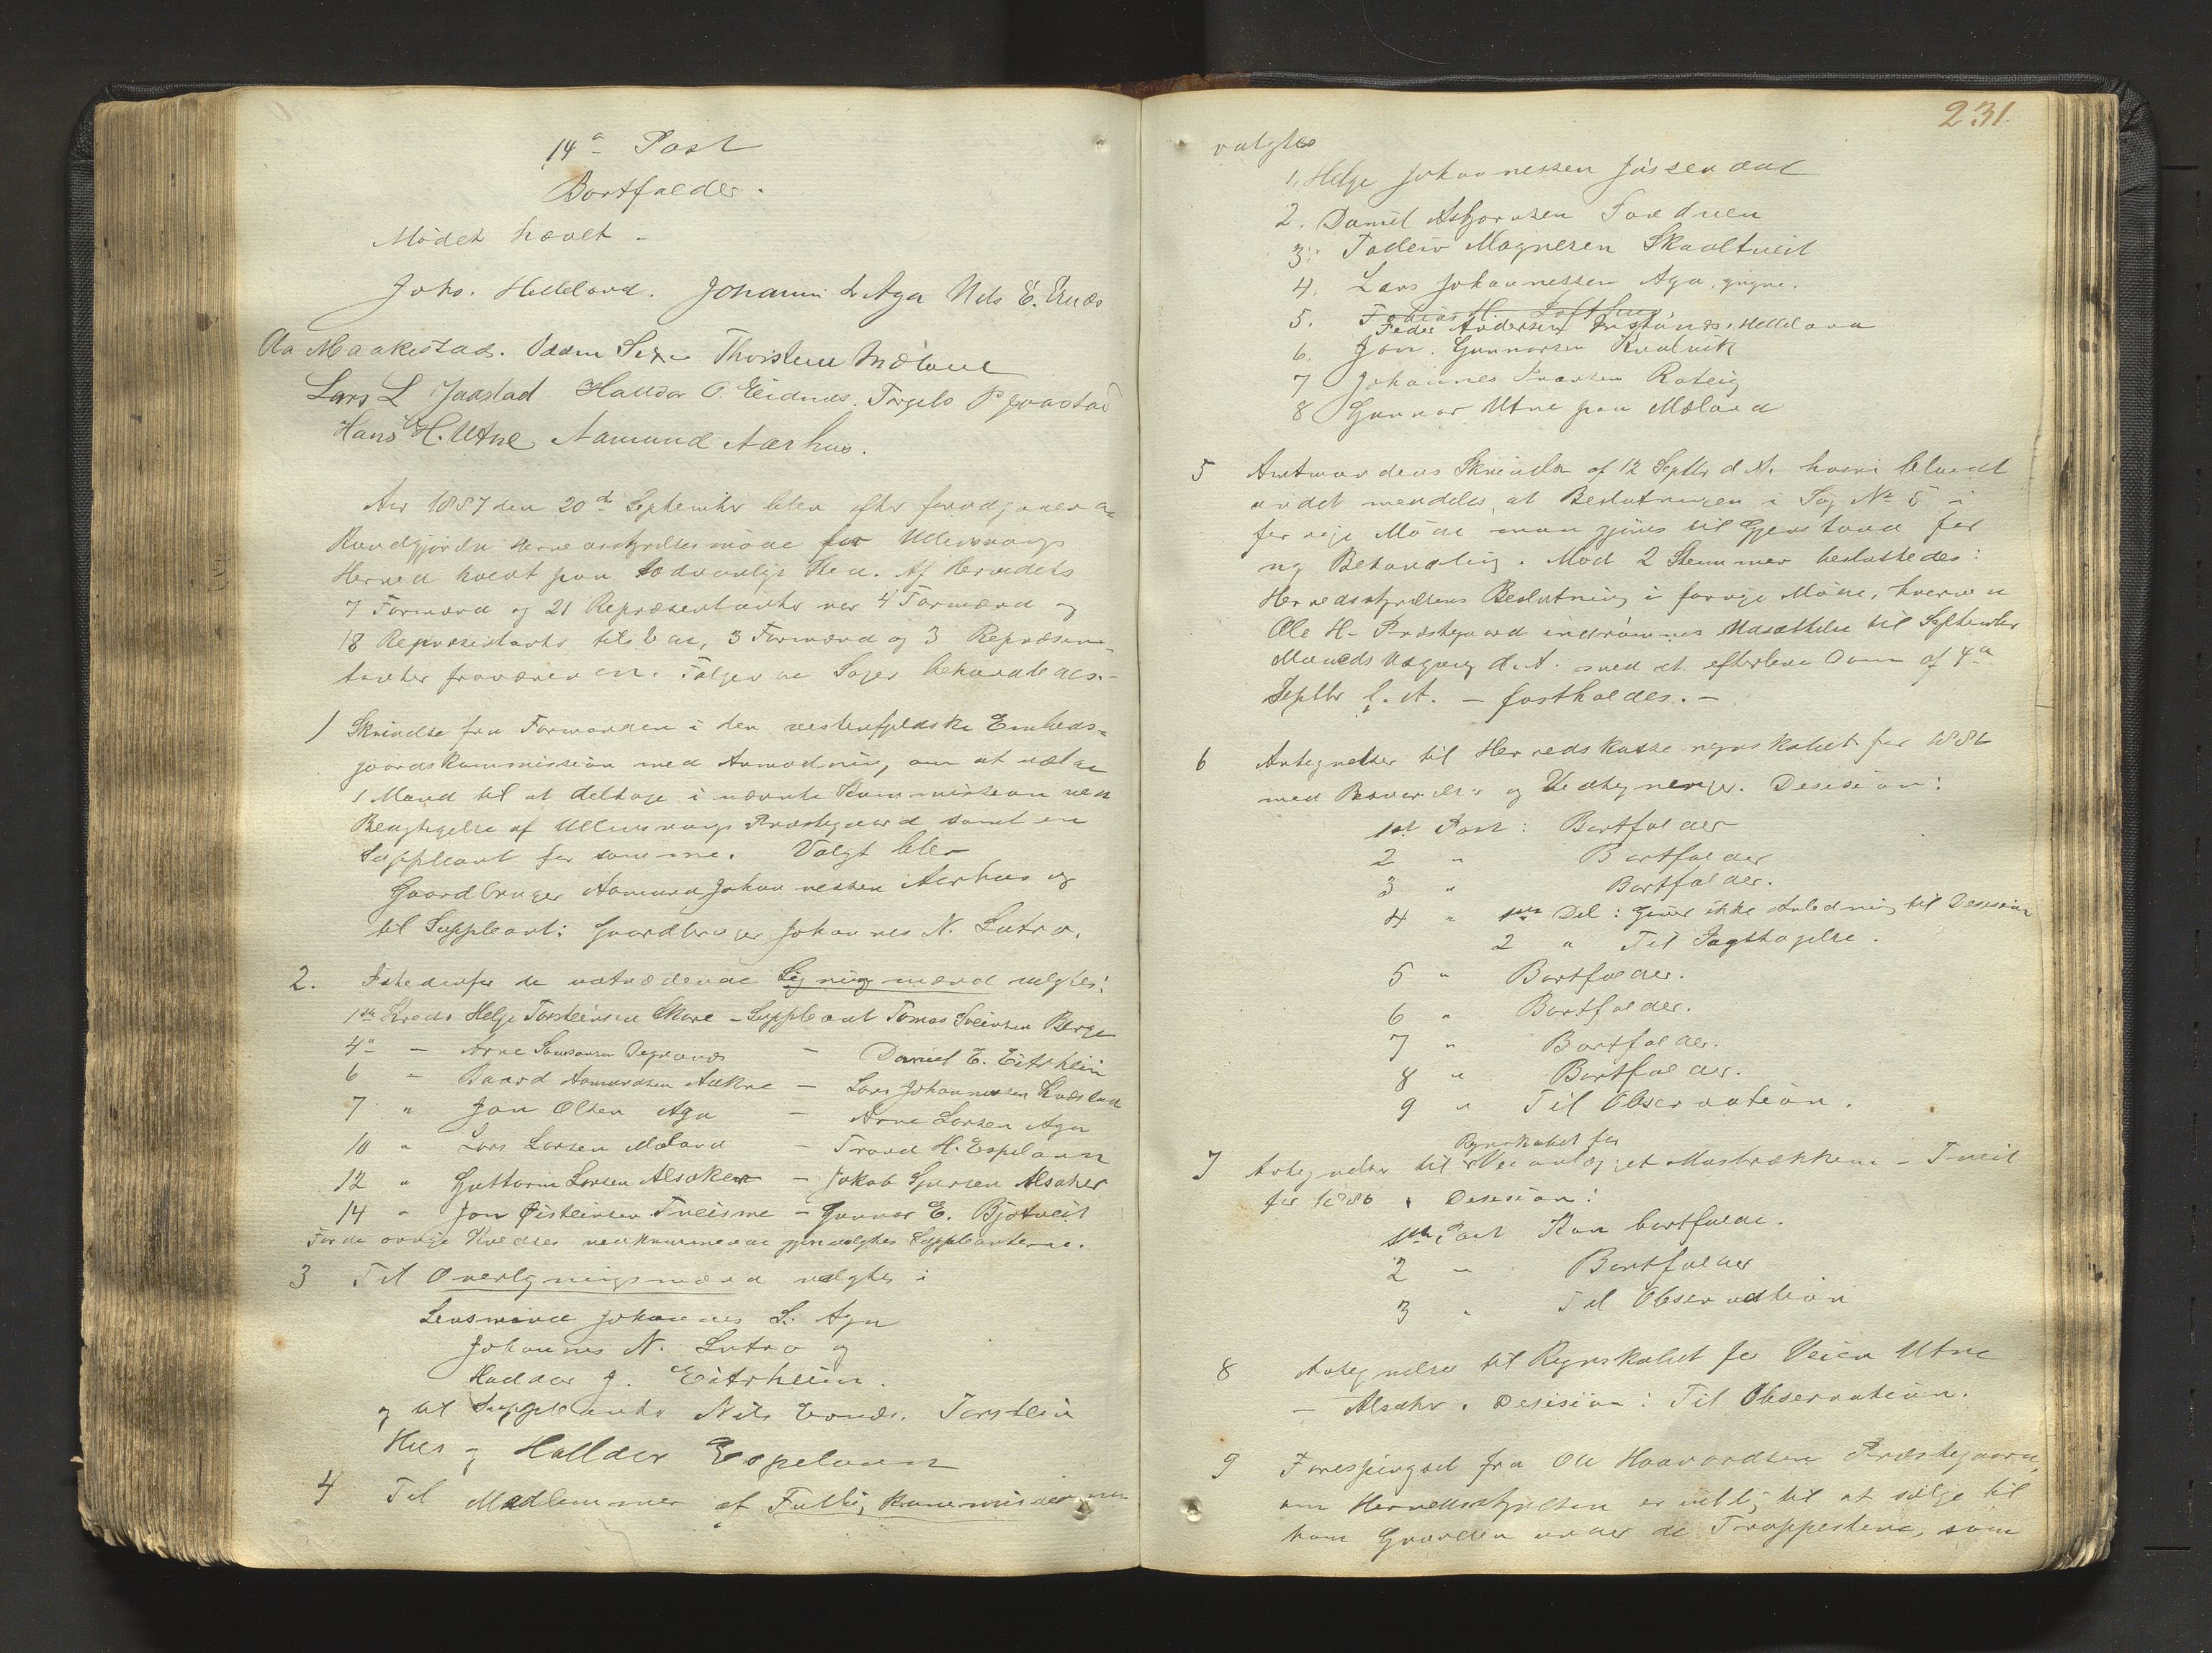 14de Post
Bortfalder.
Mödet hævet.
Johs. Helleland. Johannes L Aga Nils E. Ernes
Aa Maakestad. Oddm Sexe Thorstein Mæland
Lars L Jaastad Haldor O. Eidnes. Torgels P Jaastad
Hans H. Utne, Aamund Aarhus.
Aar 1887 den 20de September blev efter foregaaende
Kundgjörelse Herredsstyrelsesmöde for Ullensvangs
Herred holdt paa sædvanligt Sted. Af Herredets
7 Formænd og 21 Repræsentanter var 4 Formænd og
18 Repræsentanter tilstede, 3 Formænd og 3 Repræsen-
tanter fraværende. Fölgende Sager behandledes.-
1 Skrivelse fra Formanden i den vestenfjeldske Embeds-
gaardskommission med Anmodning, om at vælge
1 Mand til at deltage i nævnte Kommission ved
Besigtigelse af Ullensvangs Præstegaard samt en
Suppleant for samme. Valgt blev
Gaardbruger Aamund Johannessen Aarhus og
til Suppleant: Gaardbruger Johannes N. Lutro.
2. Istedenfor de udtrædende Ligningsmænd valgtes:
1ste Kreds Helge Torsteinsen Skare - Suppleant Tomas Sveinsen Berge
4de - Arne Samsonsen Degranæs - Daniel E. Eitrheim
6 - Baard Aamundsen Aakre - Lars Johannessen
7 " Jon Olsen Aga - Arne Larsen Aga
10 " Lars Larsen Mæland - Trond H. Espeland
12 " Guttorm Larsen Alsaker - Jakob Alsaker
14 " Jon Øisteinsen Tveisme - Gunnar E. Bjotveit
For de övrige Kredses vedkommende gjenvalgtes Suppleanterne.
3 Til Overligningsmænd valgtes:
Lensmand Johannes L. Aga
Johannes N. Lutro og
Haldor J. Eitrheim.
og til Suppleanter Nils Ernæs, Torstein
Hus og Halldor Espeland
4 Til Medlemmer af Fattigkommissionen
231.
valgtes
1, Helge Johannessen Jösendal
2. Daniel Asbjørnsen Frednes
3. Tolleiv Magnesen Skaaltveit
4. Lars Johannessen Aga, yngre.
5. Tobias H. Lofthus
Peder Andersen Helleland
6. Jon Gunnarsen Kvalvik
7 Johannes Ivarsen Roteig
8 Gunnar Utne paa Mæland
5 Amtmandens Skrivelse af 12 Septbr d. A. hvori blandt
andet meddeles, at Beslutningen i Sag No 5 i
forrige Möde maa gjöres til Gjenstand for
ny Behandling. Mod 2 Stemmer besluttedes:
Herredsstyrelsens Beslutning i forrige Möde, hvorved
Ole H. Præstegaard indrömmes Udsættelse til September
Maaneds Udgang d. A. med at efterleve Dom af 4de
Septbr f. A. - fastholdes.-
6 Antegnelser til Herredskasseregnskabet for 1886
med Besvarelse og Vedtegninger. Desesion:
1ste Post: Bortfalder
2 " Bortfalder
3 " Bortfalder.
4 " 1ste Del: Giver ikke Anledning til Desesion
2 " Til Iagttagelse.
5 " Bortfalder.
6 " Bortfalder.
7 " Bortfalder.
8 " Bortfalder.
9 " Til Observation.
Regnskabet for
7 Antegnelser til Veianlægget Mostrækkene - Tveit
for 1886. Desesion:
1ste Post Kan bortfalde.
2 " Bortfalder
3 " Til Observation
8 Antegnelser til Regnskabet for Veien Utne
- Alsaker. Desesion: Til Observation.
9 Forespörgsel fra Ole Haavardsen Præstegaard,
om Herredsstyrelsen er villig til at sælge til
ham Grunden under de Trappestene, som